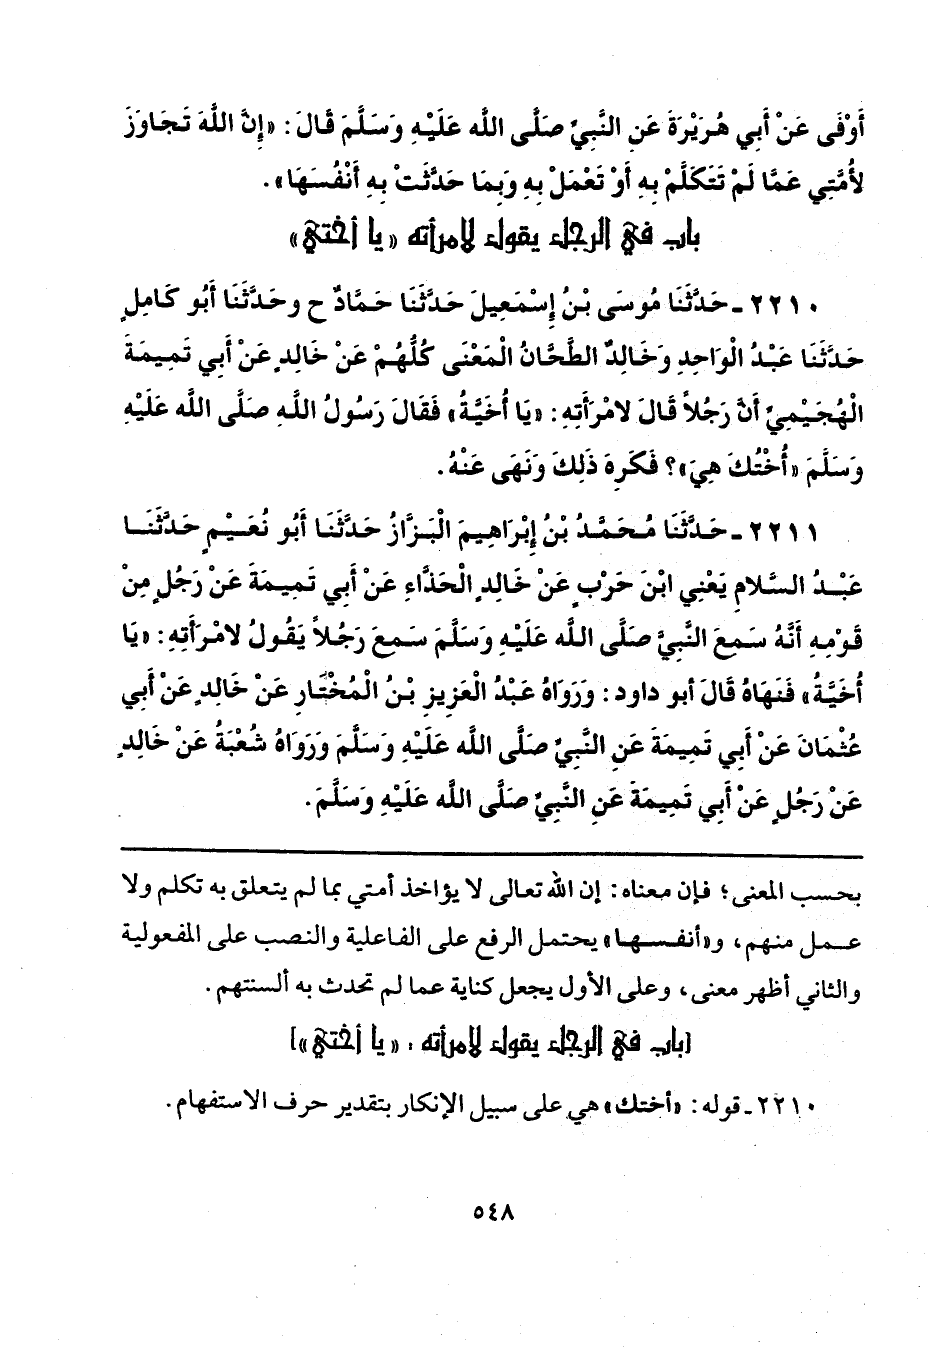 أَوْفَى عَنْ أَبِي هُرَيْرَةَ عَنِ النَّبِيِّ صَلَّى الله عَلَيْهِ وَسَلَّمَ قَالَ: «إِنَّ اللَّهَ تَجَاوَزَ
لأُمَّتِي عَمَّا لَمْ تَتَكَلَّمْ بِهِ أَوْ تَعْمَلْ بِهِ وَبِمَا حَدَّثَتْ بِهِ أَنْفُسَهَا».
باب في الرجل يقول لامرأته «يا أختي»
٢٢١٠ ـ حَدَّثَنَا مُوسَى بْنُ إِسْمَعِيلَ حَدَّثَنَا حَمَّادٌ ح وحَدَّثَنَا أَبُو كَامِلٍ
حَدَّثَنَا عَبْدُ الْوَاحِدِ وَخَالِدٌ الطَّحَّانُ الْمَعْنَى كُلُّهُمْ عَنْ خَالِدٍ عَنْ أَبِي تَمِيمَةَ
الْهُجَيْمِيِّ أَنَّ رَجُلاً قَالَ لامْرَأَتِهِ: «يَا أُخَيَّةُ» فَقَالَ رَسُولُ اللَّهِ صَلَّى الله عَلَيْهِ
وَسَلَّمَ «أُخْتُكَ هِيَ»؟ فَكَرِهَ ذَلِكَ وَنَهَى عَنْهُ.
٢٢١١ ـ حَدَّثَنَا مُحَمَّدُ بْنُ إِبْرَاهِيمَ الْبَزَّازُ حَدَّثَنَا أَبُو نُعَيْمٍ حَدَّثَنَا
عَبْدُ السَّلامِ يَعْنِي ابْنَ حَرْبٍ عَنْ خَالِدٍ الْحَذَّاءِ عَنْ أَبِي تَمِيمَةَ عَنْ رَجُلٍ مِنْ
قَوْمِهِ أَنَّهُ سَمِعَ النَّبِيَّ صَلَّى الله عَلَيْهِ وَسَلَّمَ سَمِعَ رَجُلاً يَقُولُ لامْرَأَتِهِ: «يَا
أُخَيَّةُ» فَنَهَاهُ قَالَ أبو داود: وَرَوَاهُ عَبْدُ الْعَزِيزِ بْنُ الْمُخْتَارِ عَنْ خَالِدٍ عَنْ أَبِي
عُثْمَانَ عَنْ أَبِي تَمِيمَةَ عَنِ النَّبِيِّ صَلَّى الله عَلَيْهِ وَسَلَّمَ وَرَوَاهُ شُعْبَةُ عَنْ خَالِدٍ
عَنْ رَجُلٍ عَنْ أَبِي تَمِيمَةَ عَنِ النَّبِيِّ صَلَّى الله عَلَيْهِ وَسَلَّمَ.
بحسب المعنى؛ فإن معناه: إن الله تعالى لا يؤاخذ أمتي بما لم يتعلق به تكلم ولا
عمل منهم، و«أنفسها» يحتمل الرفع على الفاعلية والنصب على المفعولية
والثاني أظهر معنى، وعلى الأول يجعل كناية عما لم تحدث به ألسنتهم.
[باب في الرجل يقول لامرأته: «يا أختي»]
٢٢١٠ ـ قوله: «أختك» هي على سبيل الإنكار بتقدير حرف الاستفهام.
٥٤٨